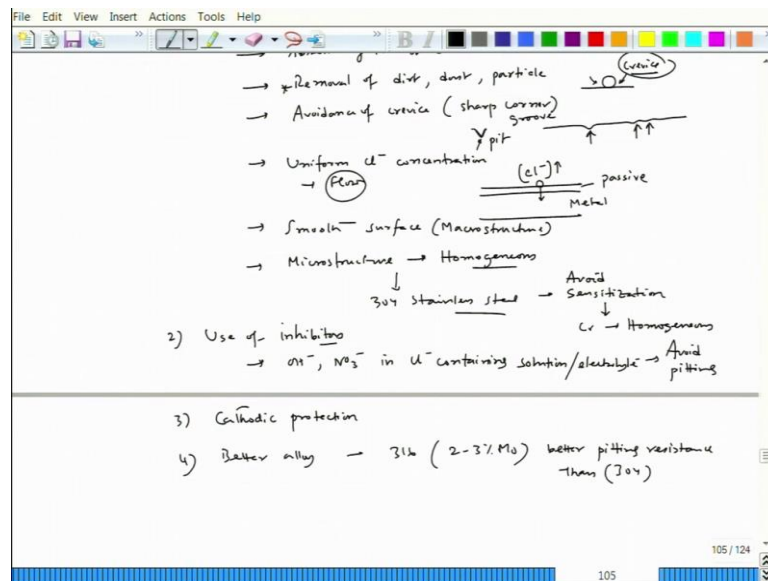 File Edit View Insert Actions Tools Help
→ *Removal of dirt, dust, particle
crevice
→ Avoidance of crevice (sharp corner)
groove
pit
→ Uniform Cl⁻ concentration
→ Flow
(Cl⁻)↑
passive
Metal
→ Smooth surface (Macrostructure)
→ Microstructure → Homogeneous
↓
304 Stainless steel → Avoid Sensitization
↓
Cr → Homogeneous
2) Use of inhibitors
→ OH⁻, NO₃⁻ in Cl⁻ containing solution/electrolyte → Avoid pitting
3) Cathodic protection
4) Better alloy → 316 (2-3% Mo) better pitting resistance
than (304)
105 / 124
105